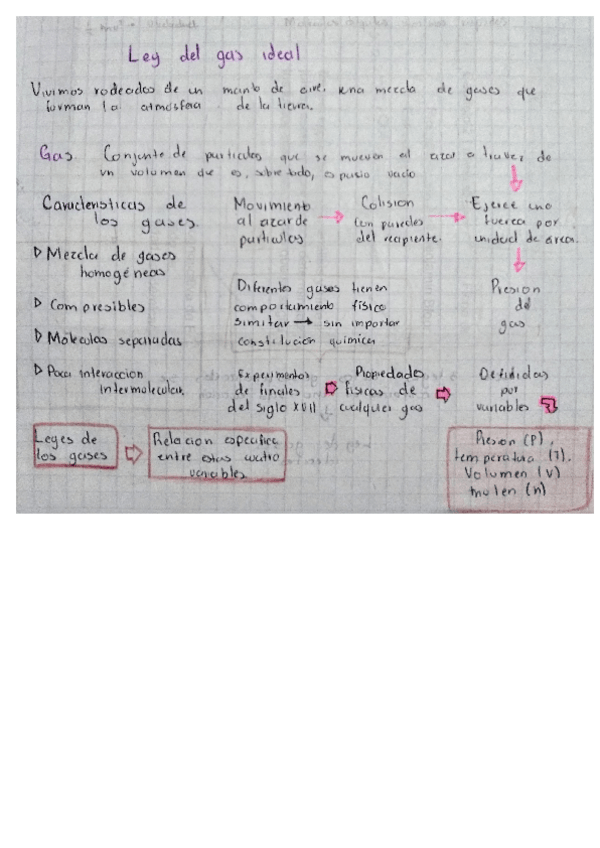 Ley del gas ideal
Vivimos rodeados de un manto de aire, una mezcla de gases que
forman la atmósfera de la tierra.
Gas Conjunto de particulas que se mueven al azar a traves de
un volumen que es, sobre todo, espacio vacio
Caracteristicas de
los gases.
▷ Mezcla de gases
homogéneas
▷ Compresibles
▷ Moléculas separadas
▷ Poca interaccion
intermolecular.
Movimiento
al azar de
particulas
Colision
con paredes
del recipiente.
Ejerce una
fuerza por
unidad de area.
Presion
del
gas
Diferentes gases tienen
comportamiento físico
similar → sin importar
constitucion quimica
Experimentos
de finales
del siglo XVII
Propiedades
fisicas de
cualquier gas
Definidas
por
variables
Presion (P),
temperatura (T).
Volumen (V)
(n)
Leyes de
los gases
Relacion especifica
entre estas cuatro
variables